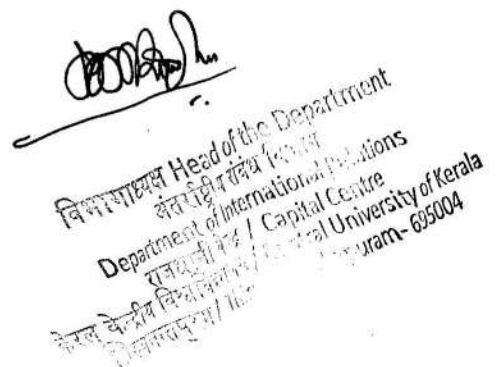 विभागाध्यक्ष Head of the Department
अंतर्राष्ट्रीय संबंध विभाग
Department of International Relations
राजधानी केन्द्र / Capital Centre
केरल केन्द्रीय विश्वविद्यालय / Central University of Kerala
uram- 695004